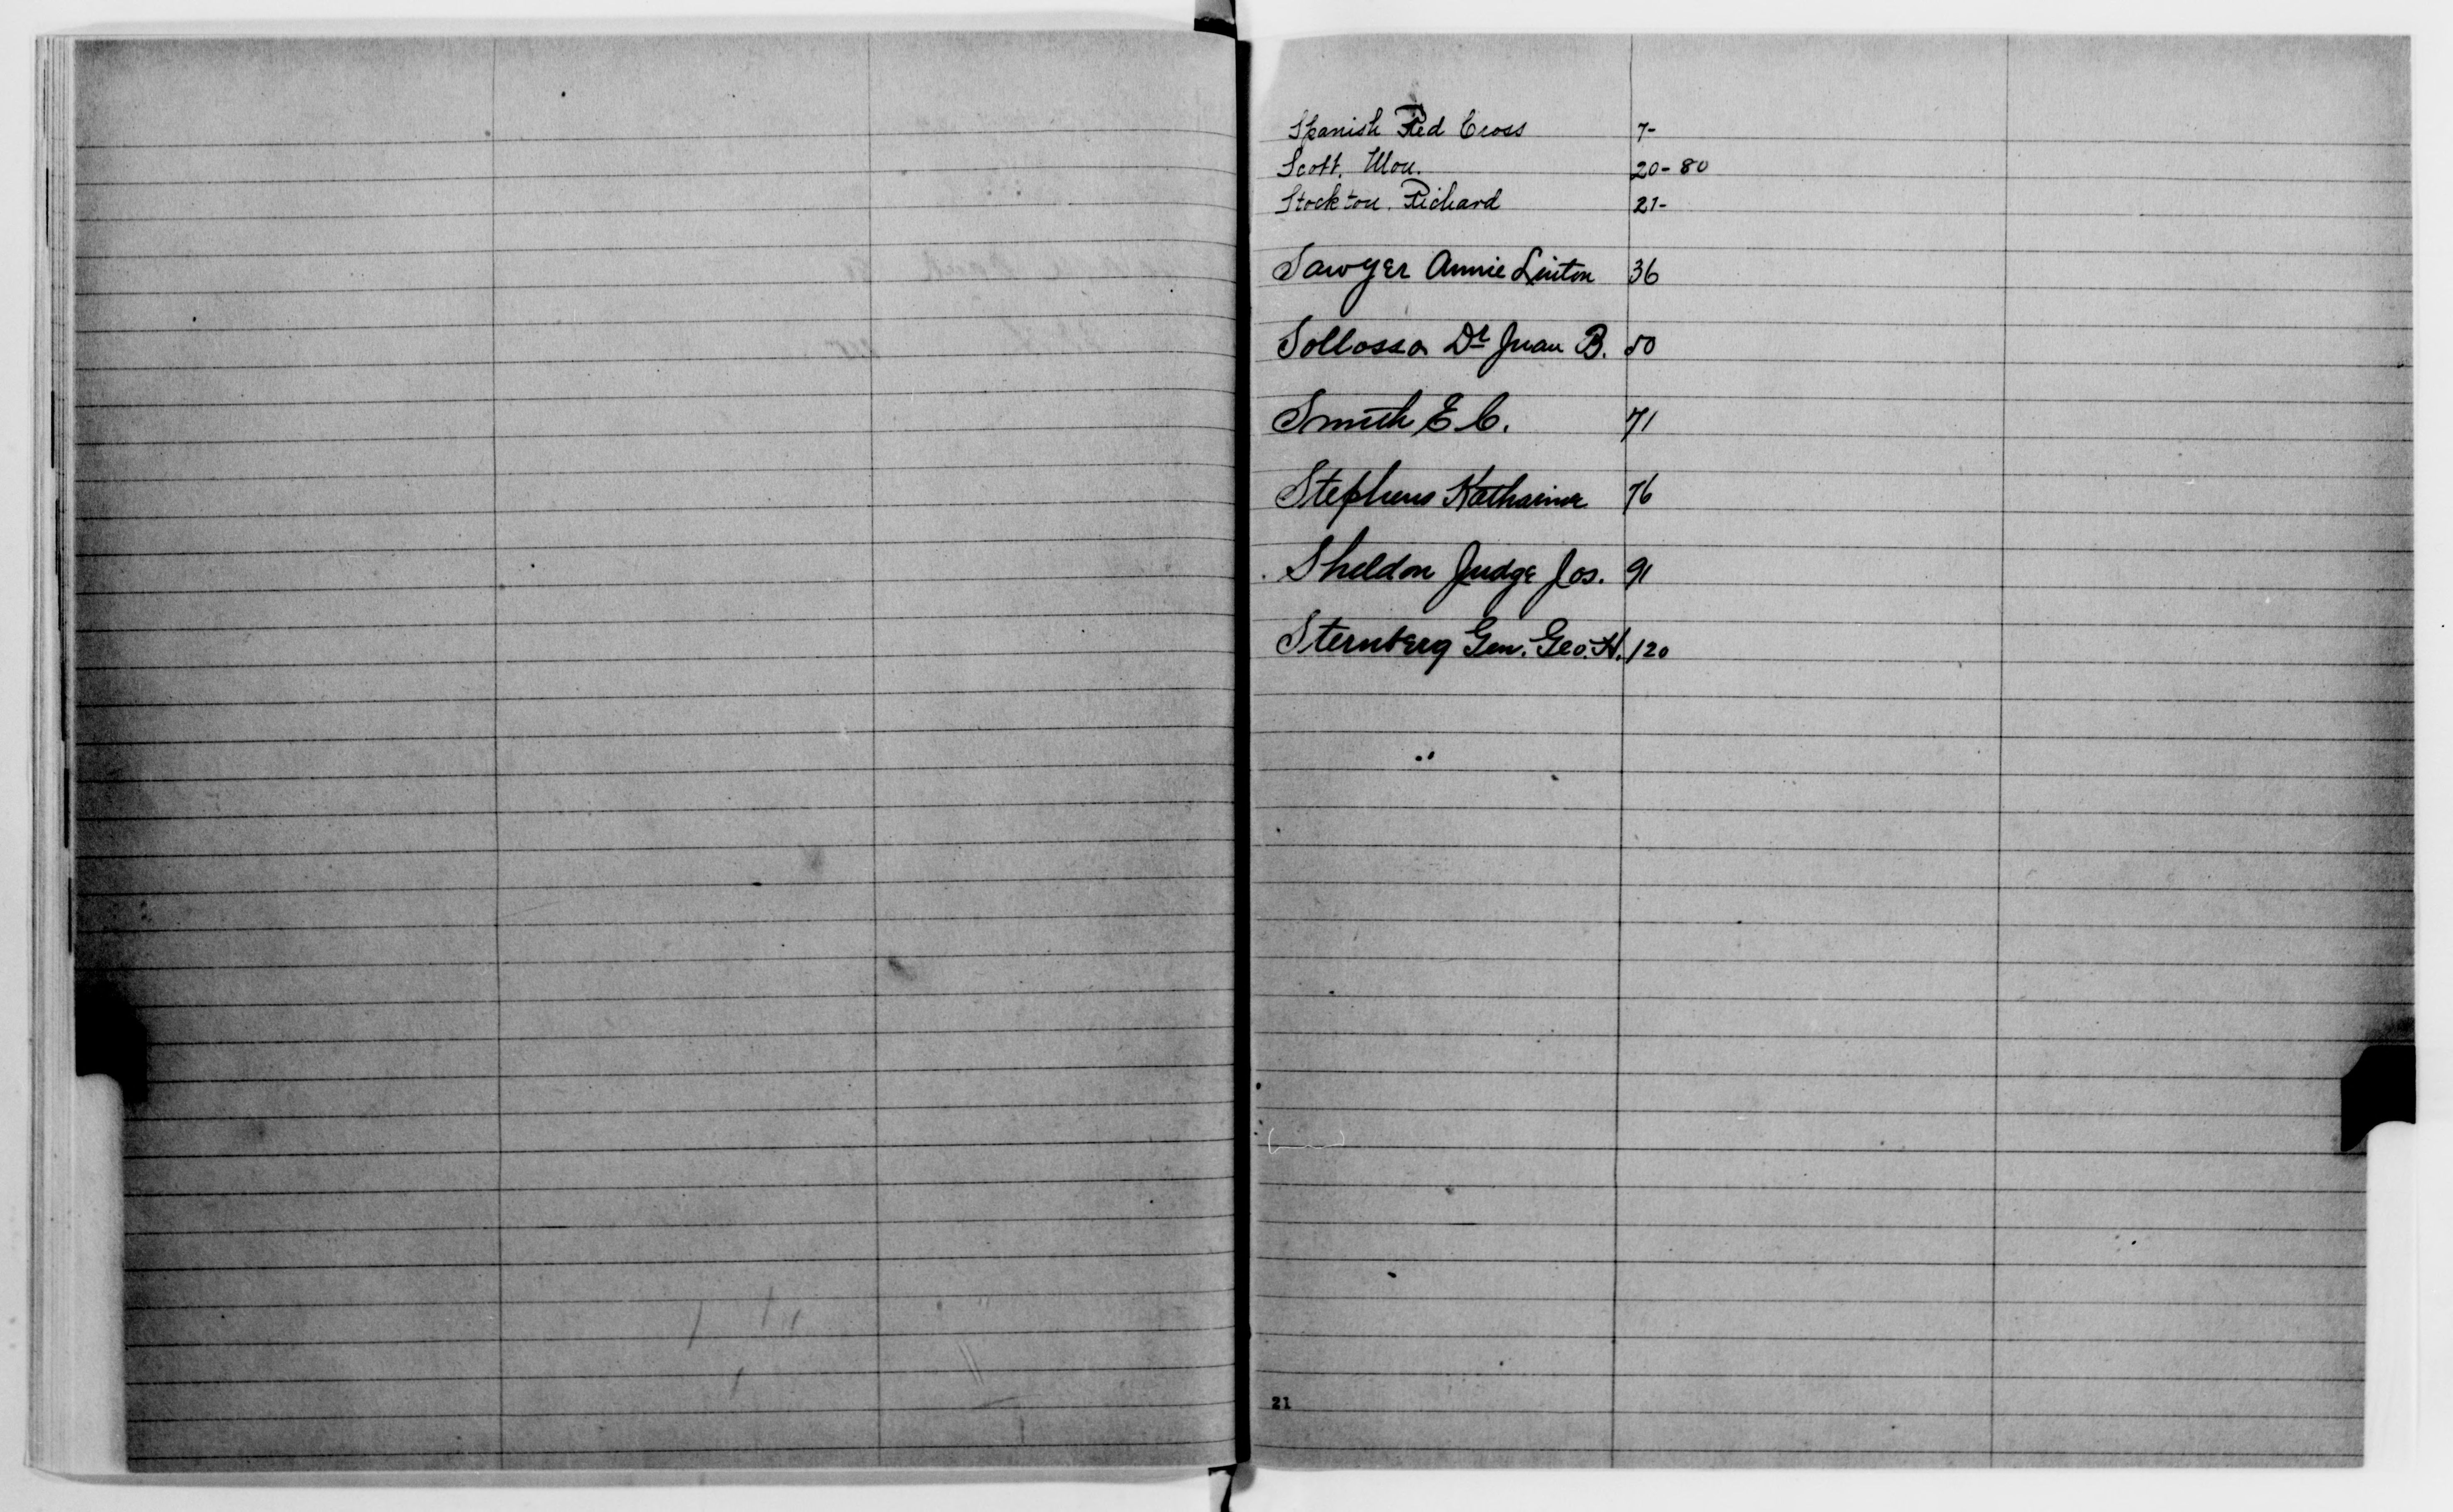 Spanish Red Cross 7-
Scott. Wm. 20-80
Stockton. Richard 21-
Sawyer Annie Linton 36
Sollosso Dr Juan B. 50
Smith E C. 71
Stephens Katharine 76
Sheldon Judge Jos. 91
Sternberg Gen. Geo. H. 120
21